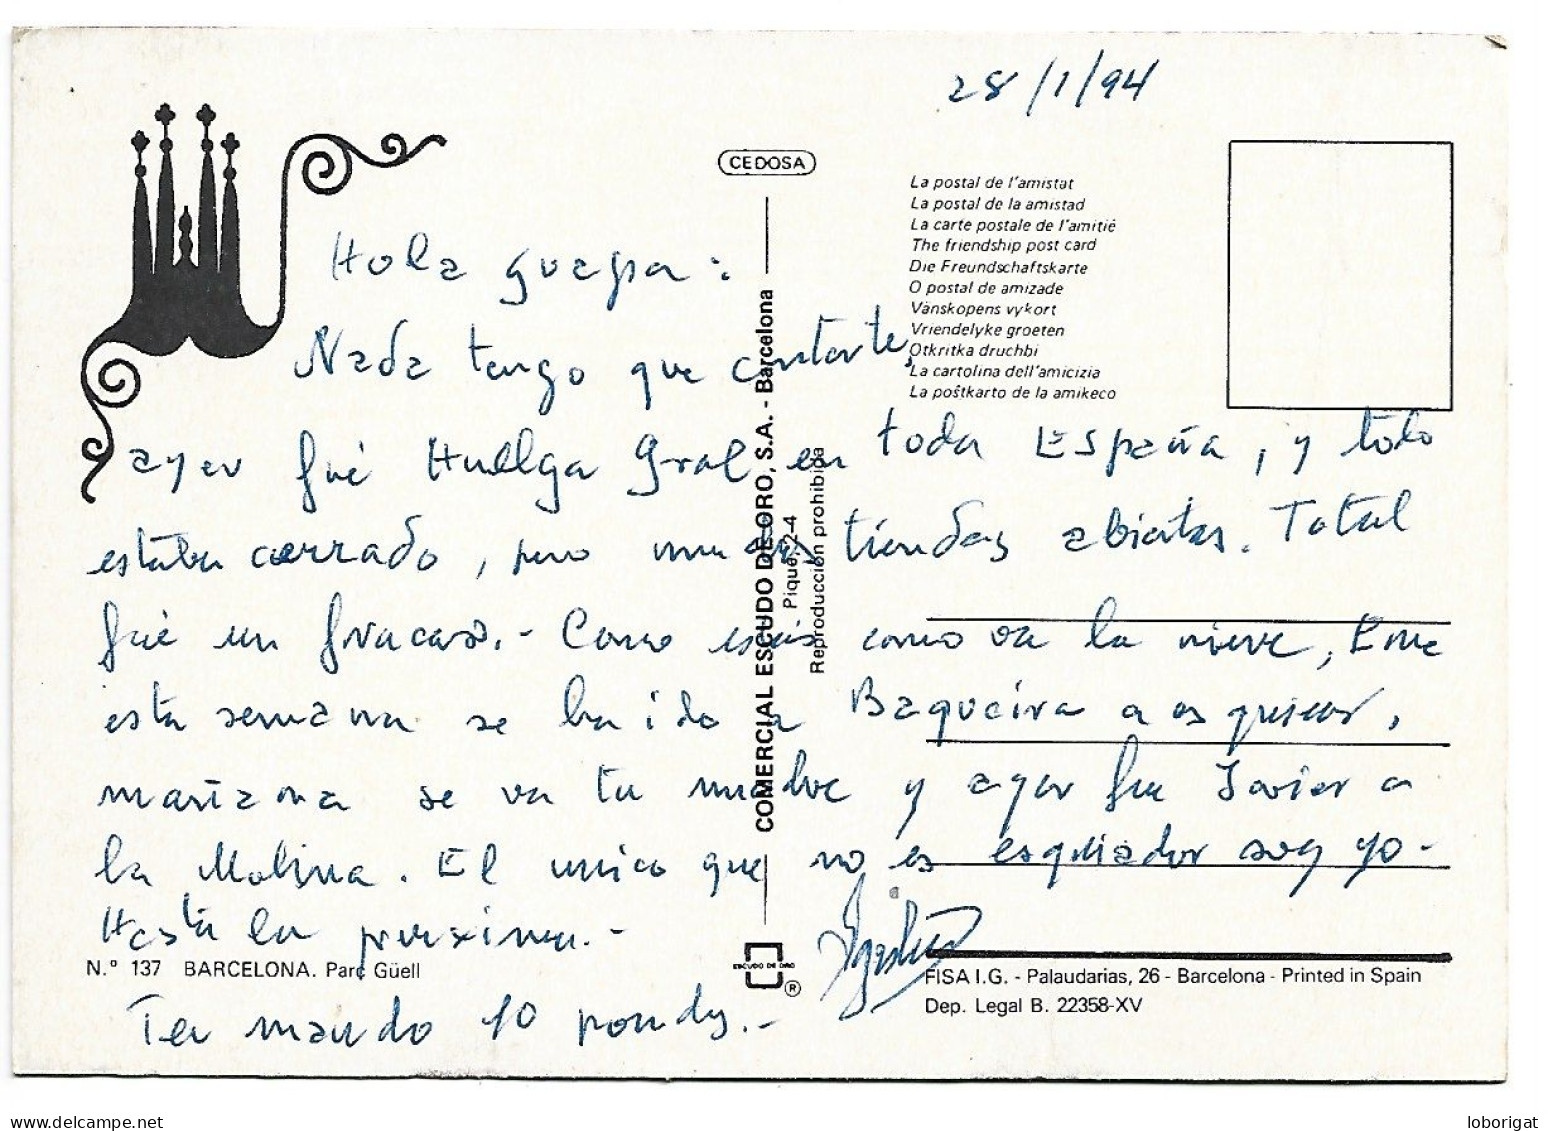 28/1/94
CEDOSA
La postal de l'amistat
La postal de la amistad
La carte postale de l'amitié
The friendship post card
Die Freundschaftskarte
O postal de amizade
Vänskopens vykort
Vriendelyke groeten
Otkritka druchbi
La cartolina dell'amicizia
La poŝtkarto de la amikeco
Hola guapa:
Nada tengo que contarte,
ayer fué Huelga Gral en toda España, y todo
estaba cerrado, pero tiendas abiertas. Total
fué un fracaso.- Como como va la nieve,
esta semana se ha ido a Baqueira a esquiar,
mañana se va tu madre y ayer fue Javier a
la Molina. El unico que no es esquiador soy yo-
Hasta la proxima.-
Te mando 10 pounds.-
COMERCIAL ESCUDO DE ORO, S.A. - Barcelona
Reproducción prohibida
N.º 137 BARCELONA. Parc Güell
ESCUDO DE ORO
®
FISA I.G. - Palaudarias, 26 - Barcelona - Printed in Spain
Dep. Legal B. 22358-XV
loborigat